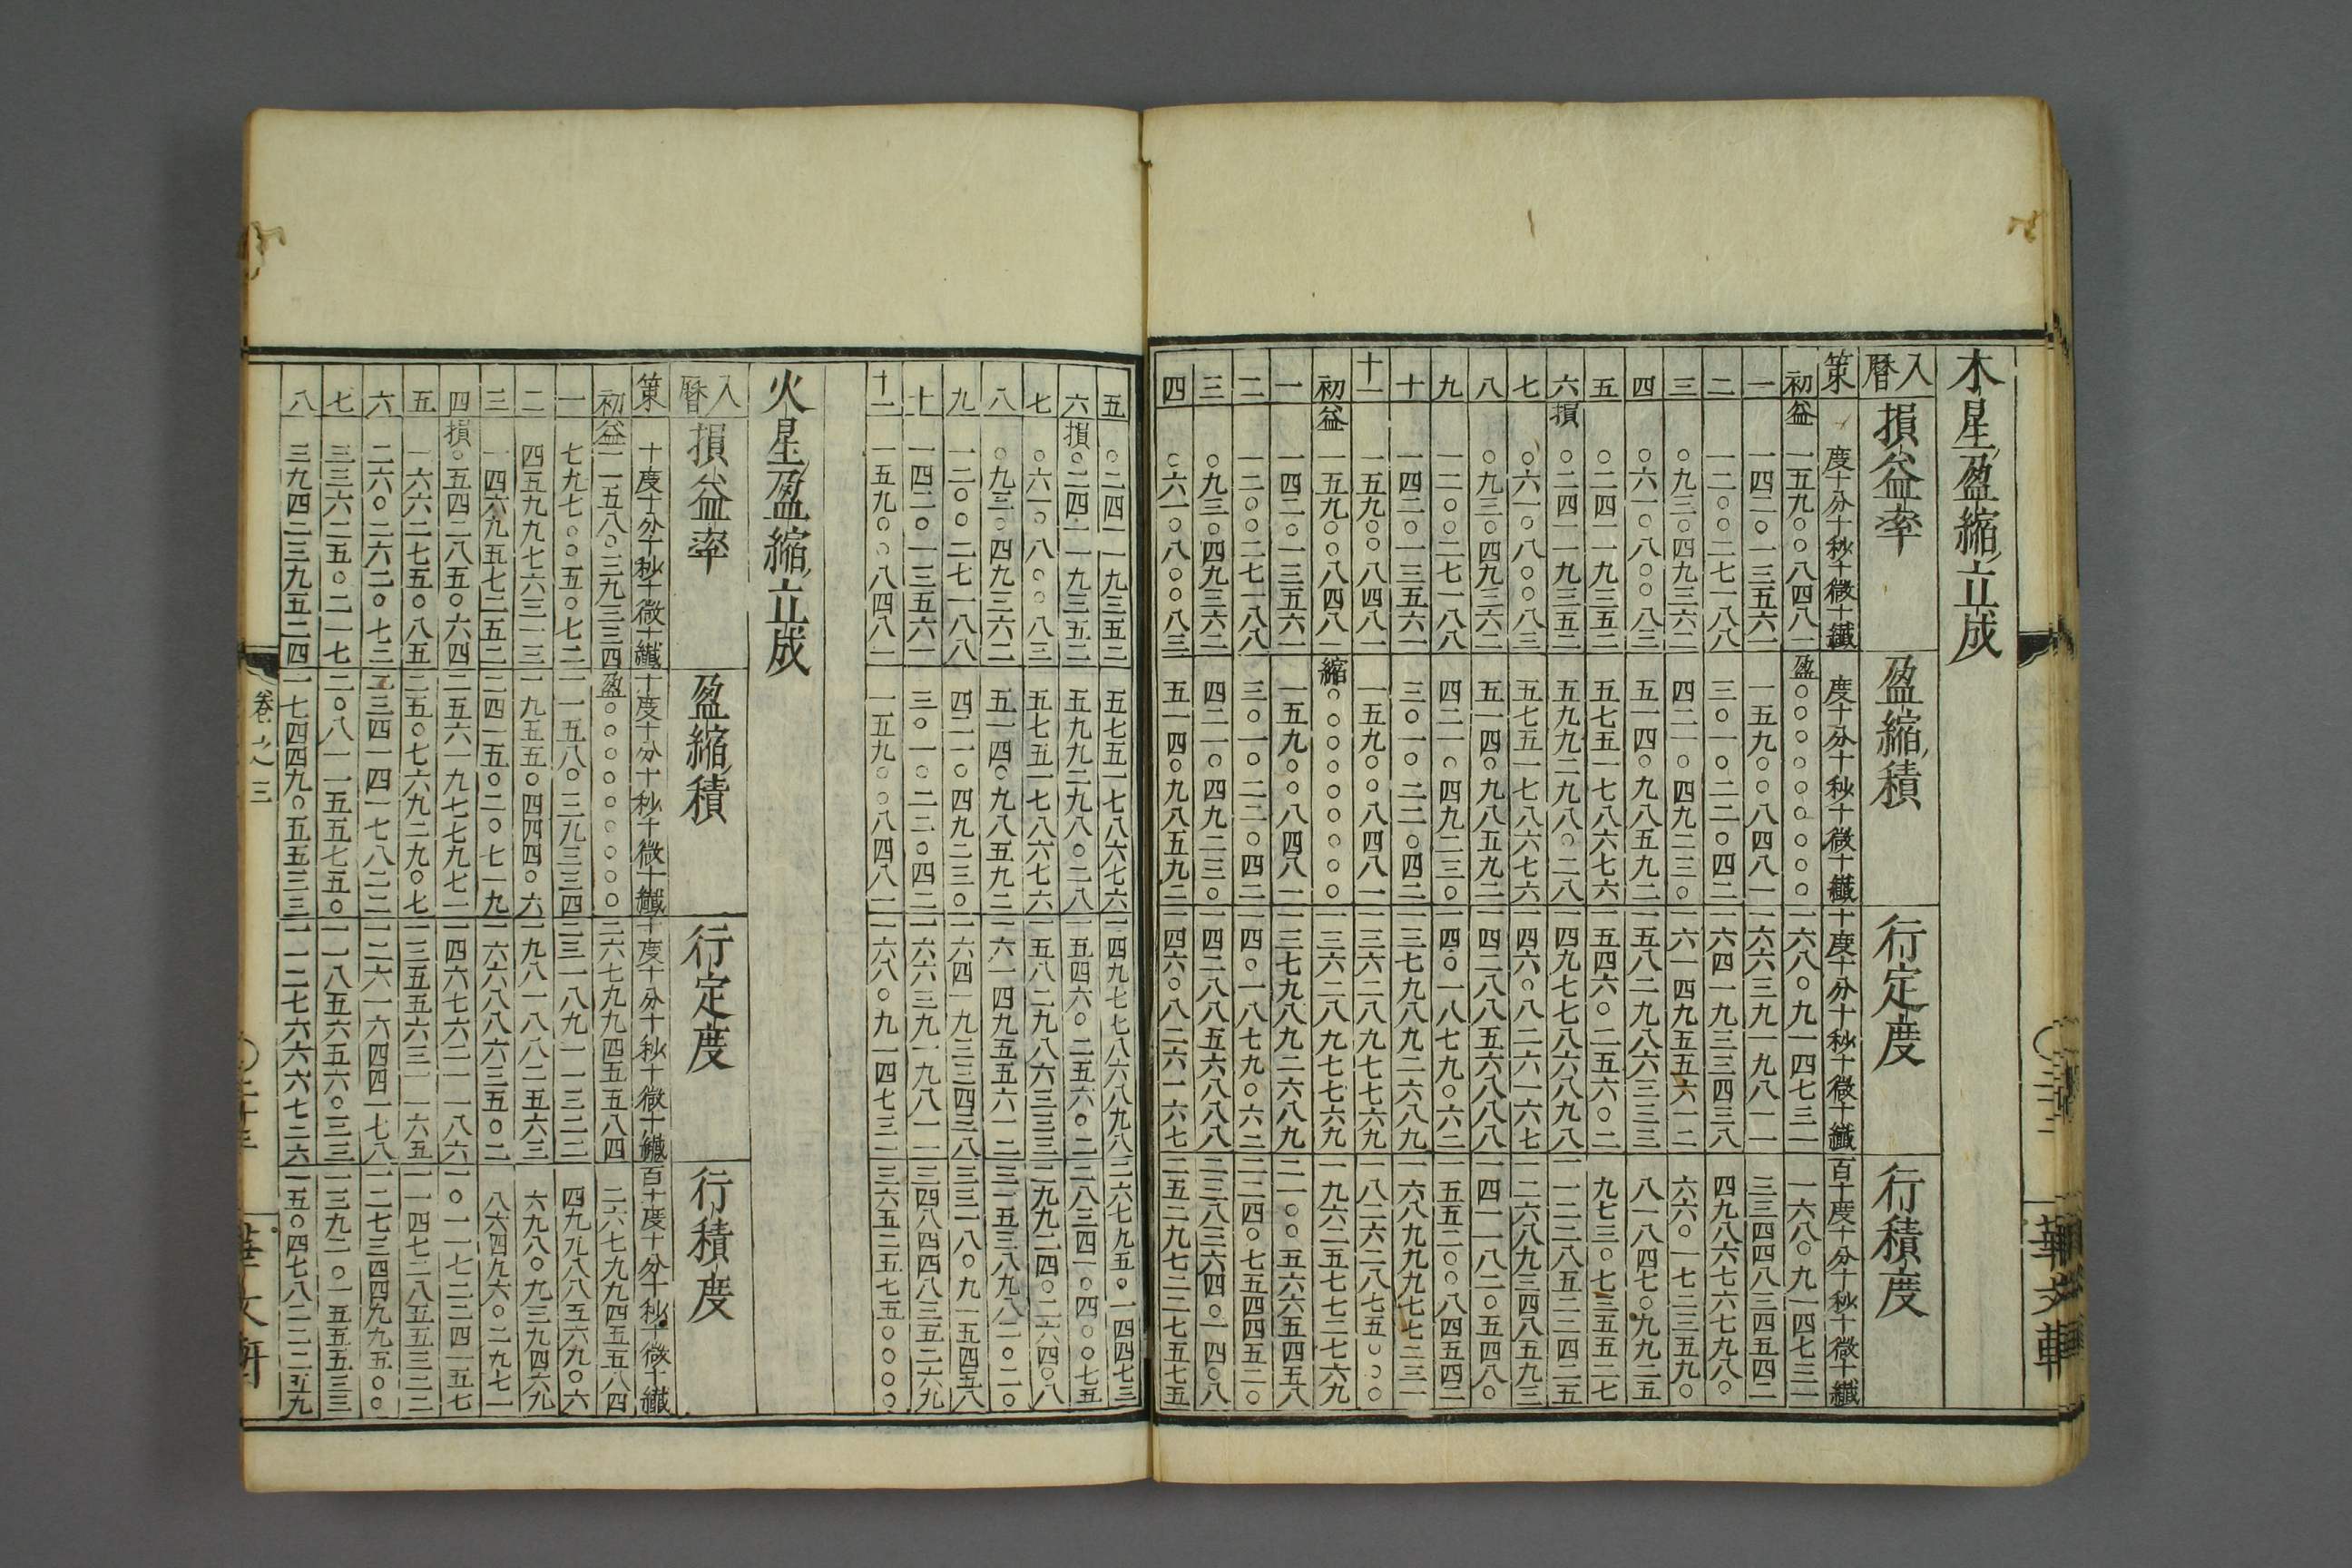 木星盈縮立成
入曆 損益率 盈縮積 行定度 行積度
策 度十分十秒十微十纖 度十分十秒十微十纖 十度十分十秒十微十纖 百十度十分十秒十微十纖
初 益一五九〇〇八四八一 盈〇〇〇〇〇〇〇〇〇 一六八〇九一四七三一 一六八〇九一四七三一
一 一四二〇一三五六一 一五九〇〇八四八一 一六六三九一九八一一 三三四四八三四五四二
二 一二〇〇二七一八八 三〇一〇二二〇四二 一六四一九三三四三八 四九八六七六七九八〇
三 〇九三〇四九三六二 四二一〇四九二三〇 一六一四九五五六一二 六六〇一七二三五九〇
四 〇六一〇八〇〇八三 五一四〇九八五九二 一五八二九八六三三三 八一八四七〇九九二五
五 〇二四一一九三五二 五七五一七八六七六 一五四六〇二五六〇二 九七三〇七三五五二七
六 損〇二四一一九三五二 五九九二九八〇二八 一四九七七八六八九八 一一二二八五二二四二五
七 〇六一〇八〇〇八三 五七五一七八六七六 一四六〇八二六一六七 一二六八九三四八五九三
八 〇九三〇四九三六二 五一四〇九八五九二 一四二八八五六八八八 一四一一八二〇五四八〇
九 一二〇〇二七一八八 四二一〇四九二三〇 一四〇一八七九〇六二 一五五二〇〇八四五四二
十 一四二〇一三五六一 三〇一〇二二〇四二 一三七九八九二六八九 一六八九九九七七二三一
十一 一五九〇〇八四八一 一五九〇〇八四八一 一三六二八九七七六九 一八二六二八七五〇〇〇
初 益一五九〇〇八四八一 縮〇〇〇〇〇〇〇〇〇 一三六二八九七七六九 一九六二五七七二七六九
一 一四二〇一三五六一 一五九〇〇八四八一 一三七九八九二六八九 二一〇〇五六六五四五八
二 一二〇〇二七一八八 三〇一〇二二〇四二 一四〇一八七九〇六二 二二四〇七五四四五二〇
三 〇九三〇四九三六二 四二一〇四九二三〇 一四二八八五六八八八 二三八三六四〇一四〇八
四 〇六一〇八〇〇八三 五一四〇九八五九二 一四六〇八二六一六七 二五二九七二二七五七五
五 〇二四一一九三五二 五七五一七八六七六 一四九七七八六八九八 二六七九五〇一四四七三
六 損〇二四一一九三五二 五九九二九八〇二八 一五四六〇二五六〇二 二八三四一〇四〇〇七五
七 〇六一〇八〇〇八三 五七五一七八六七六 一五八二九八六三三三 二九九二四〇二六四〇八
八 〇九三〇四九三六二 五一四〇九八五九二 一六一四九五五六一二 三一五三八九八二〇二〇
九 一二〇〇二七一八八 四二一〇四九二三〇 一六四一九三三四三八 三三一八〇九一五四五八
十 一四二〇一三五六一 三〇一〇二二〇四二 一六六三九一九八一一 三四八四四八三五二六九
十一 一五九〇〇八四八一 一五九〇〇八四八一 一六八〇九一四七三一 三六五二五七五〇〇〇〇
火星盈縮立成
入曆 損益率 盈縮積 行定度 行積度
策 十度十分十秒十微十纖 十度十分十秒十微十纖 十度十分十秒十微十纖 百十度十分十秒十微十纖
初 益一一五八〇三九三三四 盈〇〇〇〇〇〇〇〇〇〇 二六七九九四五五八四 二六七九九四五五八四
一 七九七〇〇五〇七二 一一五八〇三九三三四 二三一八九一一三二二 四九九八八五六九〇六
二 四五九九七六三一三 一九五五〇四四四〇六 一九八一八八二五六三 六九八〇九三九四六九
三 一四六九五七二五二 二四一五〇二〇七一九 一六六八八六三五〇二 八六四九六〇二九七一
四 損〇五四二八五〇六四 二五六一九七七九七一 一四六七六二一一八六 一〇一一七二二四一五七
五 一六六二七五〇八五 二五〇七六九二九〇七 一三五五六三一一六五 一一四七二八五五三二二
六 二六〇二六二〇七二 二三四一四一七八二二 一二六一六四四一七八 一二七三四四九九五〇〇
七 三三六二五〇二一七 二〇八一一五五七五〇 一一八五六五六〇三三 一三九二〇一五五五三三
八 三九四二三九五二四 一七四四九〇五五三三 一一二七六六六七二六 一五〇四七八二二二五九
卷之三